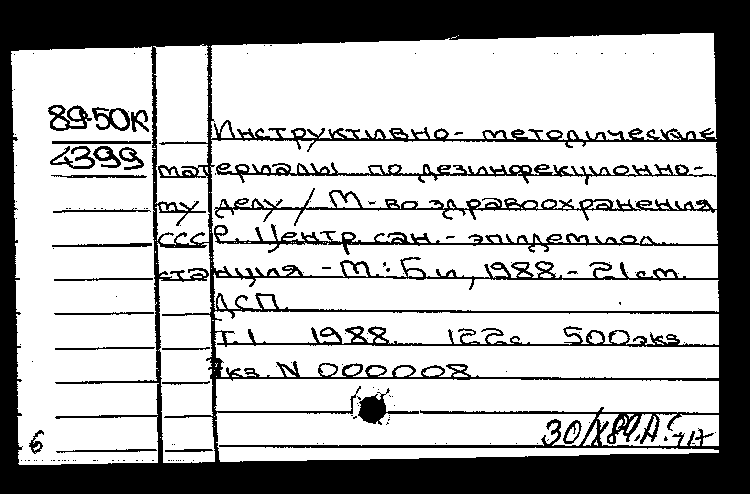 89-50К
4399
Инструктивно-методические
материалы по дезинфекционно-
му делу / М-во здравоохранения
СССР. Центр. сан.-эпидемиол.
станция. - М.: Б.и., 1988. - 21 см.
ДСП.
Т.1. 1988. 122с. 500экз
Экз. N 000008.
30/X89.
6